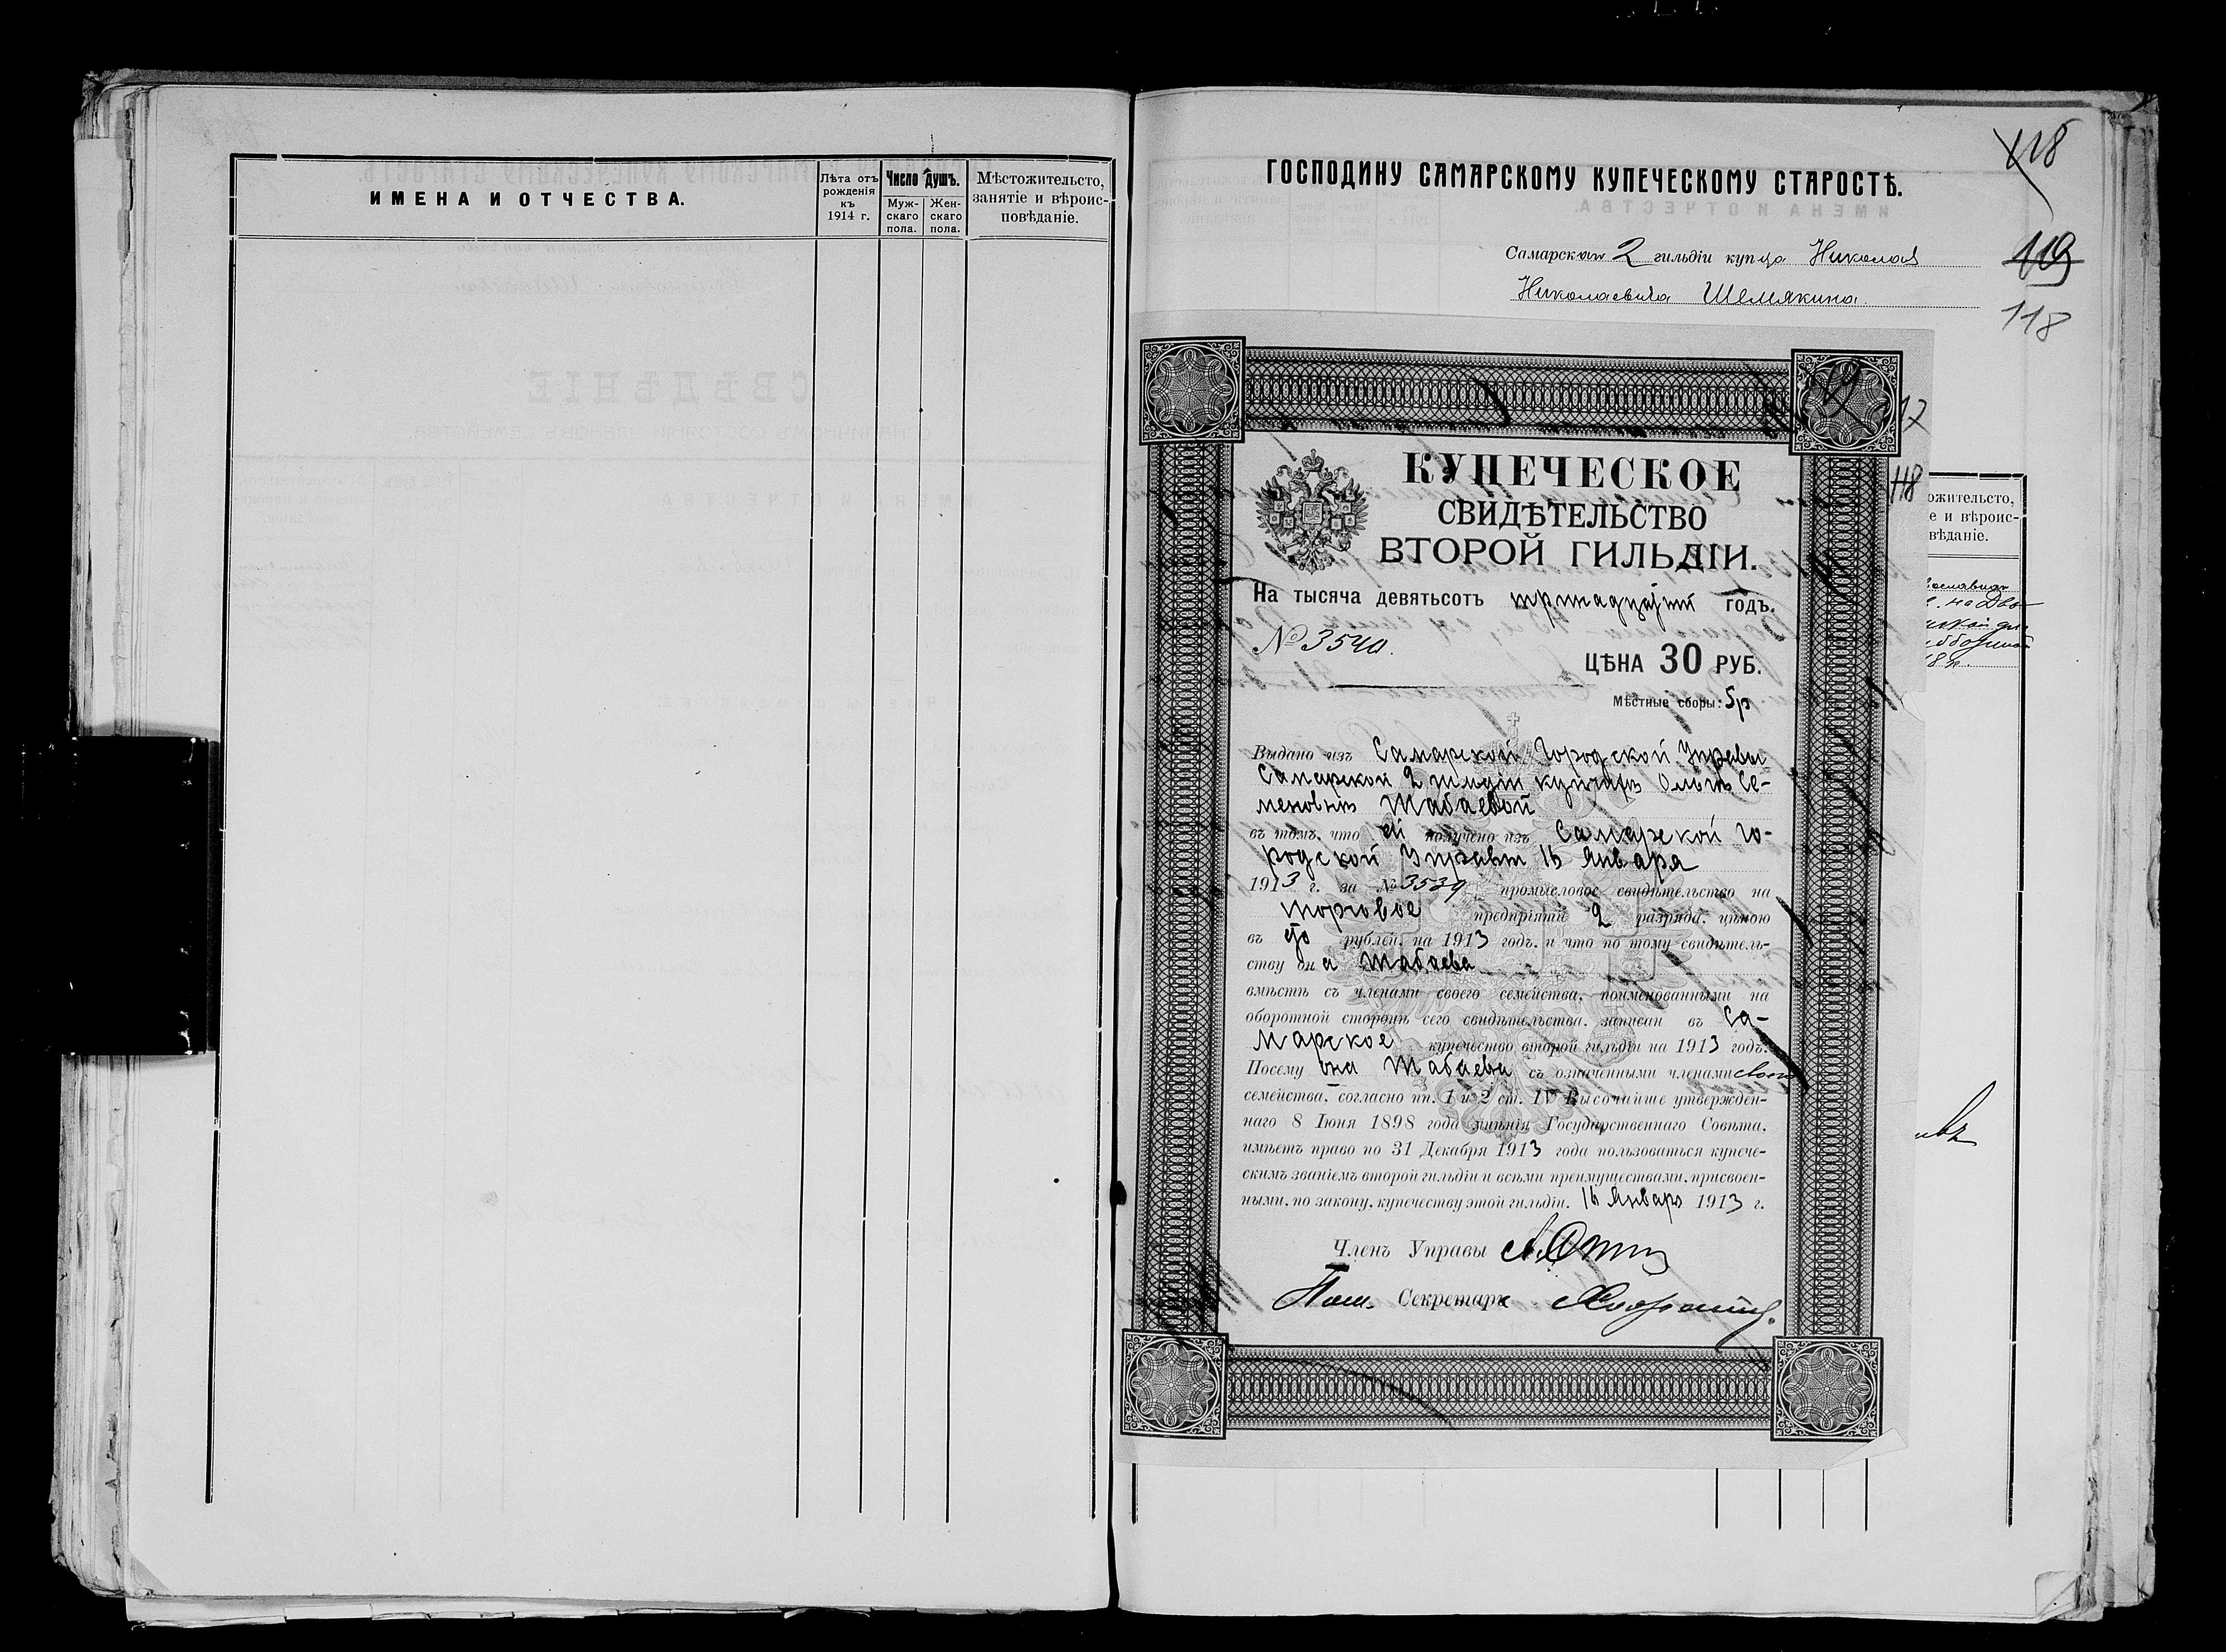 ИМЕНА И ОТЧЕСТВА.
Лѣта отъ рожденія къ 1914 г.
Число душъ.
Муж-скаго пола.
Жен-скаго пола.
Мѣстожительсто, занятіе и вѣроис-повѣданіе.
118
ГОСПОДИНУ САМАРСКОМУ КУПЕЧЕСКОМУ СТАРОСТѢ.
119
Самарскаго 2 гильдіи купца Николая
Николаевича Шемякина.
118
12
118
КУПЕЧЕСКОЕ
СВИДѢТЕЛЬСТВО
ВТОРОЙ ГИЛЬДІИ.
На тысяча девятьсотъ тринадцатый годъ.
№ 3540.
ЦѢНА 30 РУБ.
Мѣстные сборы: 5р
Выдано изъ Самарской Городской Управы
Самарской 2 гильдіи купчихѣ Ольгѣ Се-
меновнѣ Шабаевой
въ томъ, что ей получено изъ Самарской Го-
родской Управы 16 Января
1913 г. за № 3539 промысловое свидѣтельство на
торговое предпріятіе 2 разряда, цѣною
въ рублей, на 1913 годъ, и что по тому свидѣтель-
ству она Шабаева
вмѣстѣ съ членами своего семейства, поименованными на
оборотной сторонѣ сего свидѣтельства, записан въ Са-
марское купечество второй гильдіи на 1913 годъ.
Посему она Шабаева съ означенными членами своего
семейства, согласно пп. 1 и 2 ст. IV Высочайше утвержден-
наго 8 Іюня 1898 года мнѣнія Государственнаго Совѣта,
имѣетъ право по 31 Декабря 1913 года пользоваться купече-
скимъ званіемъ второй гильдіи и всѣми преимуществами, присвоен-
ными, по закону, купечеству этой гильдіи. 16 Января 1913 г.
Членъ Управы
Пом. Секретаря
ожительсто,
е и вѣроис-
вѣданіе.